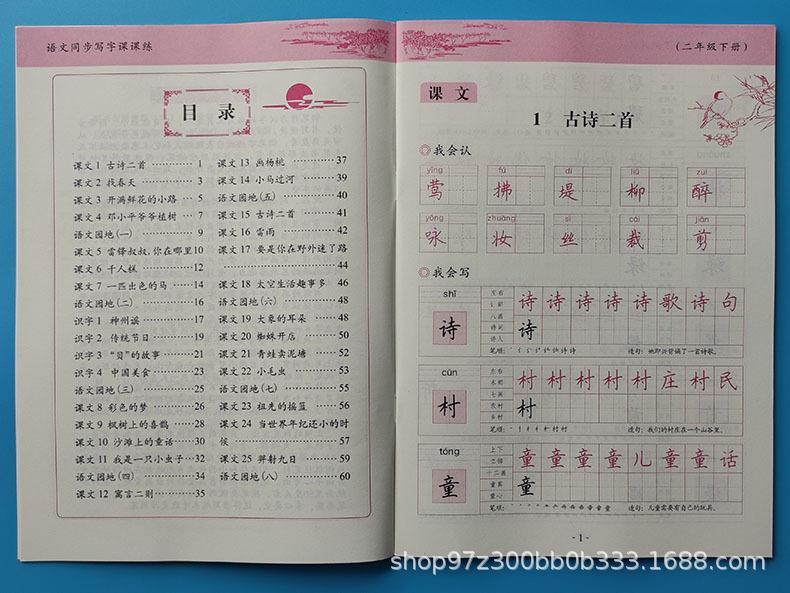 语文同步写字课课练
目 录
课文 1 古诗二首 ············ 1
课文 2 找春天 ············ 3
课文 3 开满鲜花的小路 ··· 5
课文 4 邓小平爷爷植树 ··· 7
语文园地(一) ············ 9
课文 5 雷锋叔叔,你在哪里10
课文 6 千人糕 ············12
课文 7 一匹出色的马 ······14
语文园地(二) ············16
识字 1 神州谣 ············17
识字 2 传统节日 ·········19
识字 3 “贝”的故事 ······21
识字 4 中国美食 ·········23
语文园地(三) ············25
课文 8 彩色的梦 ·········26
课文 9 枫树上的喜鹊 ······28
课文 10 沙滩上的童话 ······30
课文 11 我是一只小虫子···32
语文园地(四) ············34
课文 12 寓言二则 ·········35
课文 13 画杨桃 ············37
课文 14 小马过河 ·········39
语文园地(五) ············40
课文 15 古诗二首 ·········41
课文 16 雷雨 ············42
课文 17 要是你在野外迷了路
············ 44
课文 18 太空生活趣事多 46
语文园地(六) ············48
课文 19 大象的耳朵 ······48
课文 20 蜘蛛开店 ·········50
课文 21 青蛙卖泥塘 ······52
课文 22 小毛虫 ············53
语文园地(七) ············55
课文 23 祖先的摇篮 ······56
课文 24 当世界年记还小的时
候 ············57
课文 25 羿射九日 ·········59
语文园地(八) ············60
(二年级下册)
课 文
1 古诗二首
我会认
yīng fú dī liǔ zuì
莺 拂 堤 柳 醉
yǒng zhuāng sī cái jiǎn
咏 妆 丝 裁 剪
我会写
shī
诗
左右
讠部
八画
诗词
诗人
诗 诗 诗 诗 诗 歌 诗 句
诗
笔顺:
造句: 她即兴背诵了一首诗歌。
cūn
村
左右
木部
七画
农村
乡村
村 村 村 村 村 庄 村 民
村
笔顺:
造句: 我们的村庄在一个山谷里。
tóng
童
上下
立部
十二画
童真
童心
童 童 童 童 儿 童 童 话
童
笔顺:
造句: 儿童需要有自己的玩具。
- 1 -
shop97z300bb0b333.1688.com